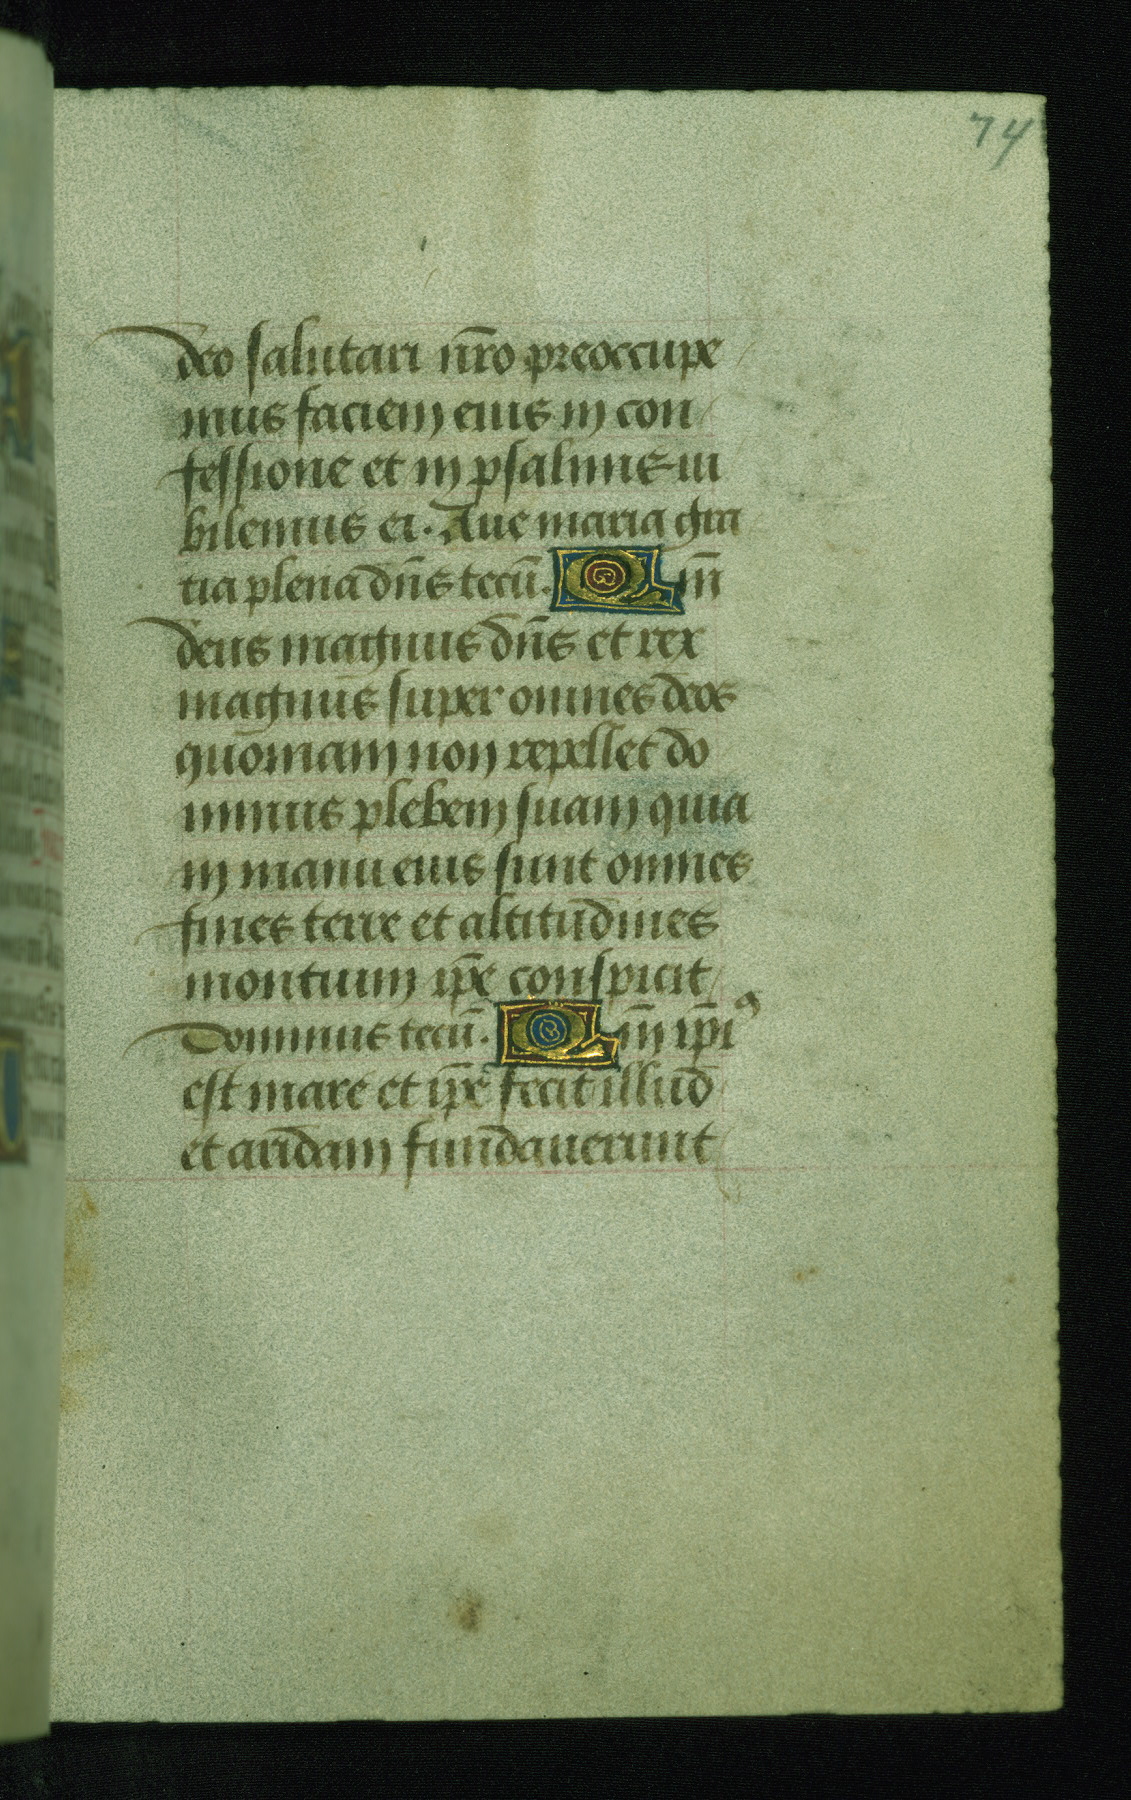 74
deo salutari nr̄o preoccupe
mus faciem eius in con
fessione et in psalmis iu
bilemus ei. Aue maria gra
tia plena dn̄s tecū. Qm̄
deus magnus dn̄s et rex
magnus super omnes deos
quoniam non repellet do
minus plebem suam quia
in manu eius sunt omnes
fines terre et altitudines
montium ip̄e conspicit
Dominus tecū. Qm̄ ip̄iꝰ
est mare et ip̄e fecit illud
et aridam fundauerunt